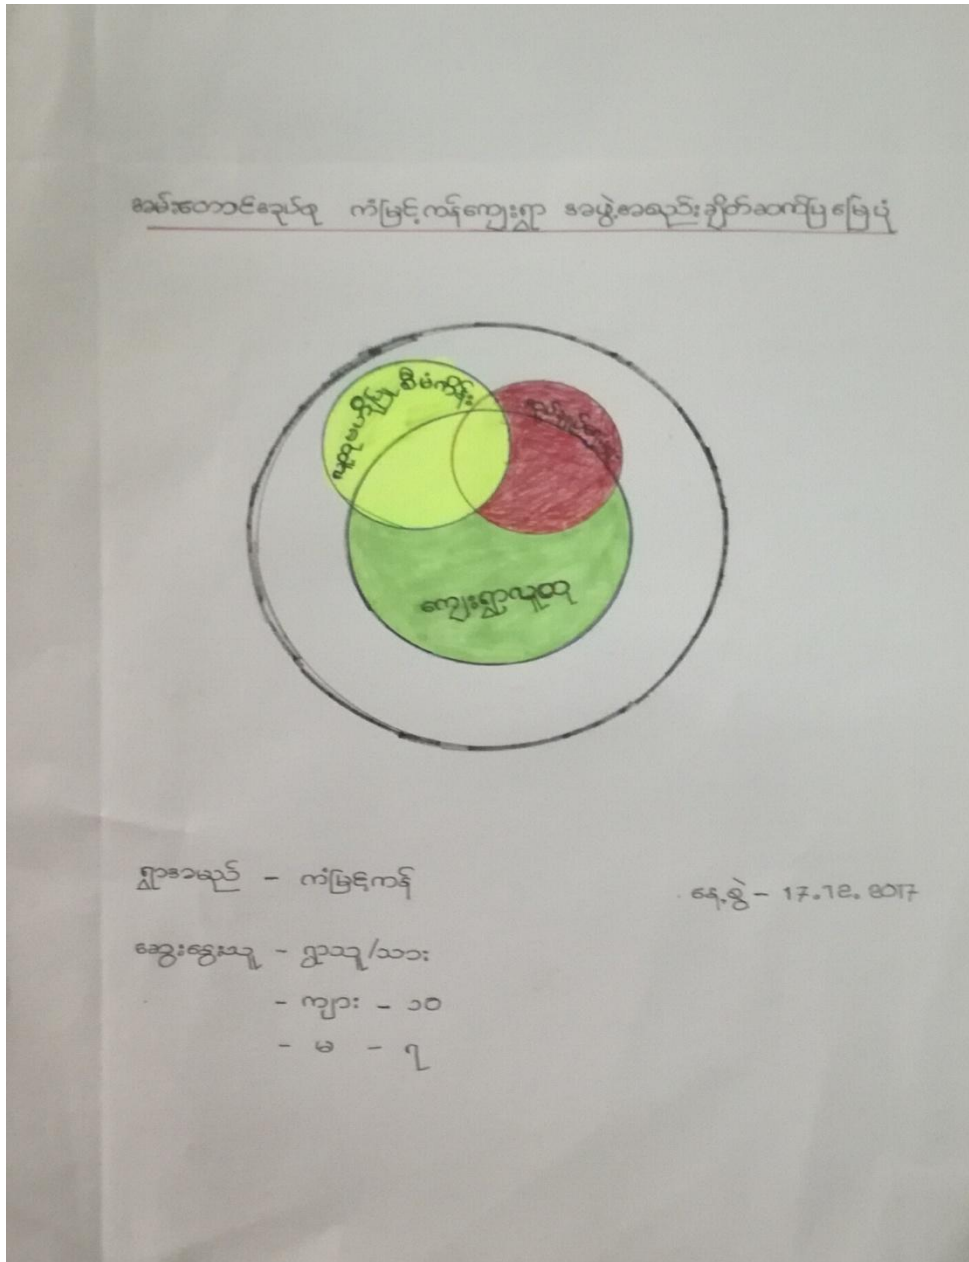 ခမ်းတောင်အုပ်စု ကံမြင့်ကန်ကျေးရွာ အဖွဲ့အစည်းချိတ်ဆက်ပြမြေပုံ
လူထုဗဟိုပြု စီမံကိန်း
ကျေးရွာလူထု
ရွာအမည် - ကံမြင့်ကန်
နေ့စွဲ - 17.12.2017
ဆွေးနွေးသူ - ရွာသူ/သား
- ကျား - ၁၀
- မ - ၇